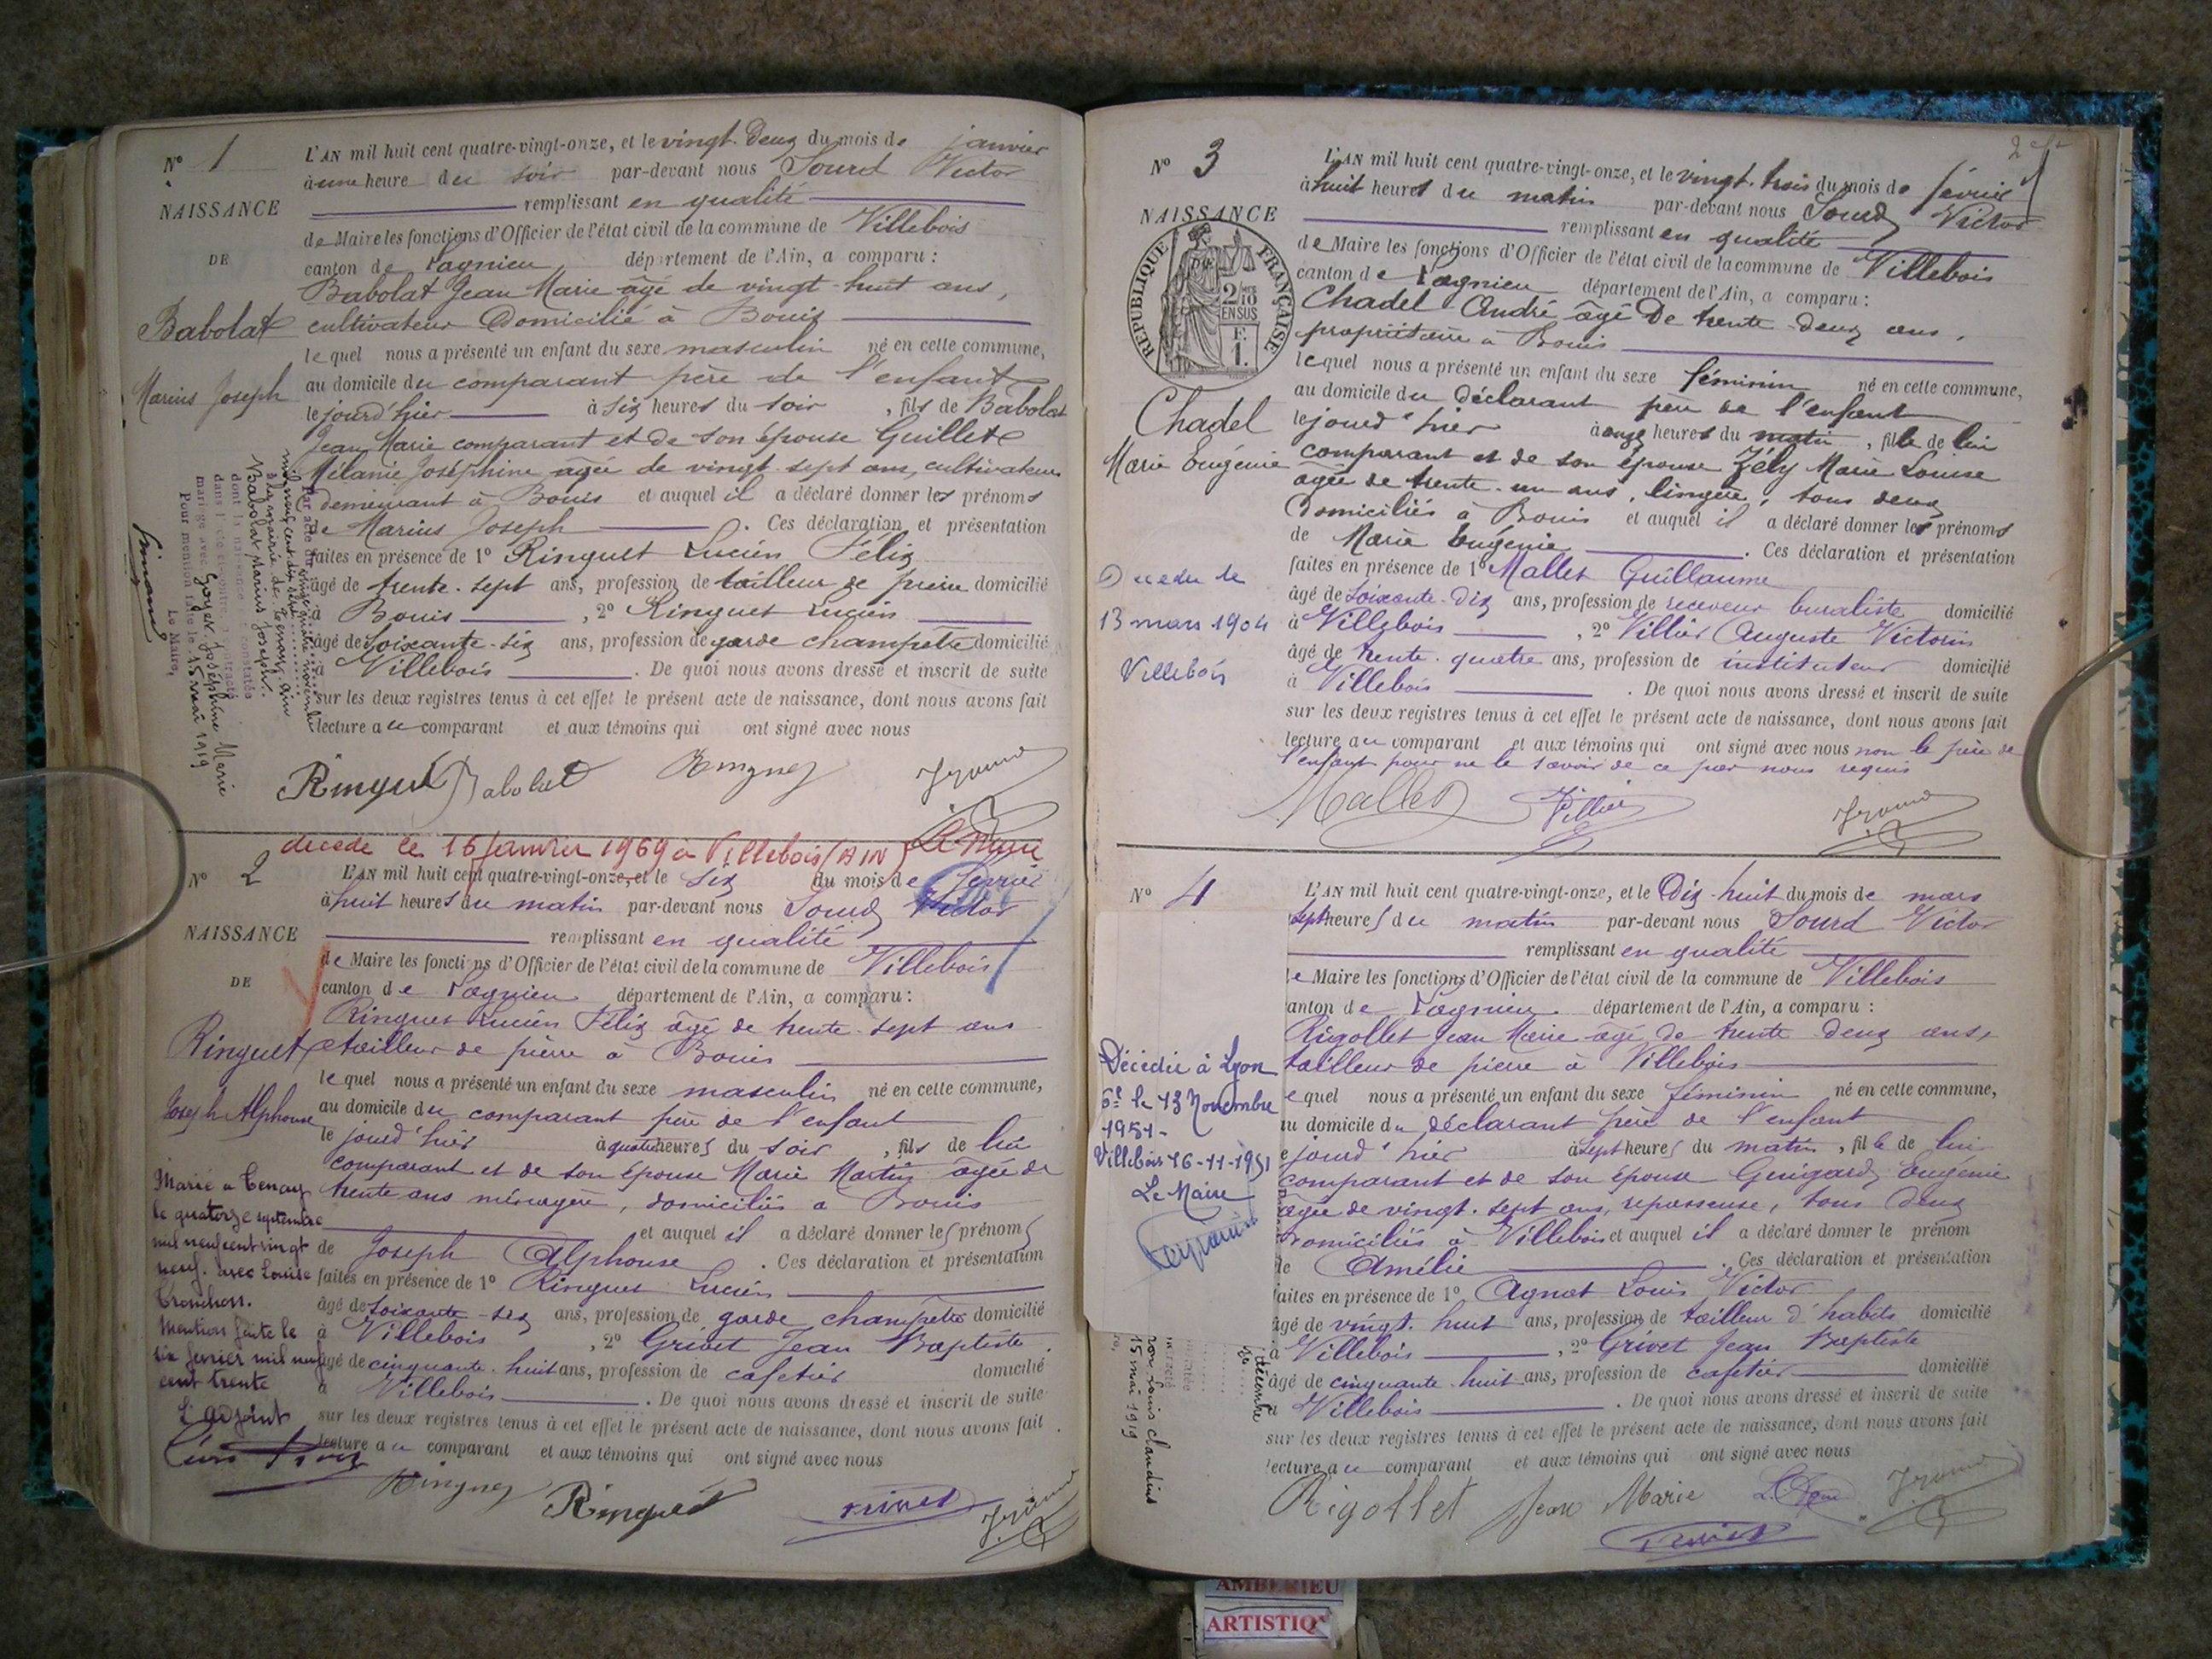 N° 1
NAISSANCE
DE
Babolat
Marius Joseph
L'AN mil huit cent quatre-vingt-onze, et le vingt-deux du mois de janvier
à une heure du soir par-devant nous Sourd Victor
remplissant en qualité
de Maire les fonctions d'Officier de l'état civil de la commune de Villebois
canton de Lagnieu département de l'Ain, a comparu :
Babolat Jean Marie âgé de vingt-huit ans,
cultivateur domicilié à Bouis
lequel nous a présenté un enfant du sexe masculin né en cette commune,
au domicile du comparant père de l'enfant
le jourd'hier à six heures du soir, fils de Babolat
Jean Marie comparant et de son épouse Guillet
Mélanie Joséphine âgée de vingt-sept ans, cultivateurs
demeurant à Bouis et auquel il a déclaré donner les prénoms
de Marius Joseph. Ces déclaration et présentation
faites en présence de 1° Ringuet Lucien Félix
âgé de trente-sept ans, profession de tailleur de pierre domicilié
à Bouis, 2° Ringuet Lucien
âgé de soixante-six ans, profession de garde champêtre domicilié
à Villebois. De quoi nous avons dressé et inscrit de suite
sur les deux registres tenus à cet effet le présent acte de naissance, dont nous avons fait
lecture au comparant et aux témoins qui ont signé avec nous
Par acte du vingt-quatre novembre
mil neuf cent dix-sept
à la mairie de Tenay, Ain
Babolat Marius Joseph
dont la naissance est constatée
dans l'acte ci-contre a contracté
mariage avec Goyet Joséphine Marie
Pour mention faite le 15 mai 1919
Le Maire,
Ringuet Babolat Ringuet
decede le 16 janvier 1969 à Villebois (AIN) Le Maire
N° 2
NAISSANCE
DE
Ringuet
Joseph Alphonse
L'AN mil huit cent quatre-vingt-onze, et le six du mois de février
à huit heures du matin par-devant nous Sourd Victor
remplissant en qualité
de Maire les fonctions d'Officier de l'état civil de la commune de Villebois
canton de Lagnieu département de l'Ain, a comparu :
Ringuet Lucien Félix âgé de trente-sept ans
tailleur de pierre à Bouis
lequel nous a présenté un enfant du sexe masculin né en cette commune,
au domicile du comparant père de l'enfant
le jourd'hier à quatre heures du soir, fils de lui
comparant et de son épouse Marie Martin âgée de
trente ans ménagère, domiciliés à Bouis
et auquel il a déclaré donner les prénoms
de Joseph Alphonse. Ces déclaration et présentation
faites en présence de 1° Ringuet Lucien
âgé de soixante-six ans, profession de garde champêtre domicilié
à Villebois, 2° Grivet Jean Baptiste
âgé de cinquante-huit ans, profession de cafetier domicilié
à Villebois. De quoi nous avons dressé et inscrit de suite
sur les deux registres tenus à cet effet le présent acte de naissance, dont nous avons fait
lecture au comparant et aux témoins qui ont signé avec nous
Marié à Tenay
le quatorze septembre
mil neuf cent vingt
neuf. avec Louise
Tronchon.
Mention faite le
six fevrier mil neuf
cent trente
L'adjoint
Ringuet Ringuet Grivet
N° 3
NAISSANCE
REPUBLIQUE FRANÇAISE
2/10 EN SUS
F. 1.
Chadel
Marie Eugénie
L'AN mil huit cent quatre-vingt-onze, et le vingt-trois du mois de février
à huit heures du matin par-devant nous Sourd Victor
remplissant en qualité
de Maire les fonctions d'Officier de l'état civil de la commune de Villebois
canton de Lagnieu département de l'Ain, a comparu :
Chadel André âgé de trente-deux ans,
propriétaire à Bouis
lequel nous a présenté un enfant du sexe féminin né en cette commune,
au domicile du déclarant père de l'enfant
le jourd'hier à onze heures du matin, fille de lui
comparant et de son épouse Zély Marie Louise
âgée de trente-un ans, lingère, tous deux
domiciliés à Bouis et auquel il a déclaré donner les prénoms
de Marie Eugénie. Ces déclaration et présentation
faites en présence de 1° Mallet Guillaume
âgé de soixante-dix ans, profession de receveur buraliste domicilié
à Villebois, 2° Villier Auguste Victorin
âgé de trente-quatre ans, profession de instituteur domicilié
à Villebois. De quoi nous avons dressé et inscrit de suite
sur les deux registres tenus à cet effet le présent acte de naissance, dont nous avons fait
lecture au comparant et aux témoins qui ont signé avec nous non le père de
l'enfant pour ne le savoir de ce par nous requis
Decedee le
13 mars 1904
Villebois
Mallet Villier
N° 4
L'AN mil huit cent quatre-vingt-onze, et le dix-huit du mois de mars
sept heures du matin par-devant nous Sourd Victor
remplissant en qualité
de Maire les fonctions d'Officier de l'état civil de la commune de Villebois
canton de Lagnieu département de l'Ain, a comparu :
Rigollet Jean Marie âgé de trente-deux ans,
tailleur de pierre à Villebois
lequel nous a présenté un enfant du sexe féminin né en cette commune,
au domicile du déclarant père de l'enfant
le jourd'hier à sept heures du matin, fille de lui
comparant et de son épouse Guigard Eugénie
âgée de vingt-sept ans, repasseuse, tous deux
domiciliés à Villebois et auquel il a déclaré donner le prénom
de Amélie. Ces déclaration et présentation
faites en présence de 1° Agnat Louis Victor
âgé de vingt-huit ans, profession de tailleur d'habits domicilié
à Villebois, 2° Grivet Jean Baptiste
âgé de cinquante-huit ans, profession de cafetier domicilié
à Villebois. De quoi nous avons dressé et inscrit de suite
sur les deux registres tenus à cet effet le présent acte de naissance, dont nous avons fait
lecture au comparant et aux témoins qui ont signé avec nous
Décédée à Lyon
6e le 13 Novembre
1951-
Villebois 16-11-1951
Le Maire
décembre
Louis Claudius
15 mai 1919
Rigollet Jean Marie
Grivet
AMBERIEU
ARTISTIQ